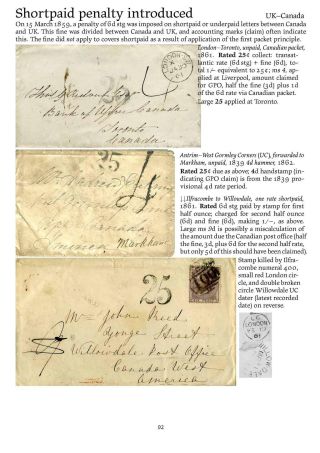 Shortpaid penalty introduced
UK–Canada
On 15 March 1859, a penalty of 6d stg was imposed on shortpaid or underpaid letters between Canada
and UK. This fine was divided between Canada and UK, and accounting marks (claim) often indicate
this. The fine did not apply to covers shortpaid as a result of application of the first packet principle.
London–Toronto, unpaid, Canadian packet,
1861. Rated 25¢ collect: transat-
lantic rate (6d stg) + fine (6d), to-
tal 1/- equivalent to 25¢; ms 4, ap-
plied at Liverpool, amount claimed
for GPO, half the fine (3d) plus 1d
of the 6d rate via Canadian packet.
Large 25 applied at Toronto.
Bank of Upper Canada
Toronto
Canada
25
Antrim–West Gormley Corners (UC), forwarded to
Markham, unpaid, 1839 4d hammer, 1862.
Rated 25¢ due as above; 4d handstamp (in-
dicating GPO claim) is from the 1839 pro-
visional 4d rate period.
America
Markham
↓↓Ilfracombe to Willowdale, one rate shortpaid,
1861. Rated 6d stg paid by stamp for first
half ounce; charged for second half ounce
(6d) and fine (6d), making 1/–, as above.
Large ms 9d is possibly a miscalculation of
the amount due the Canadian post office (half
the fine, 3d, plus 6d for the second half rate,
but only 5d of this should have been claimed).
Stamp killed by Ilfra-
combe numeral 400,
small red London cir-
cle, and double broken
circle Willowdale UC
dater (latest recorded
date) on reverse.
25
Mr John
Yonge Street
Willowdale Post Office
Canada West
America
LONDON
61
92